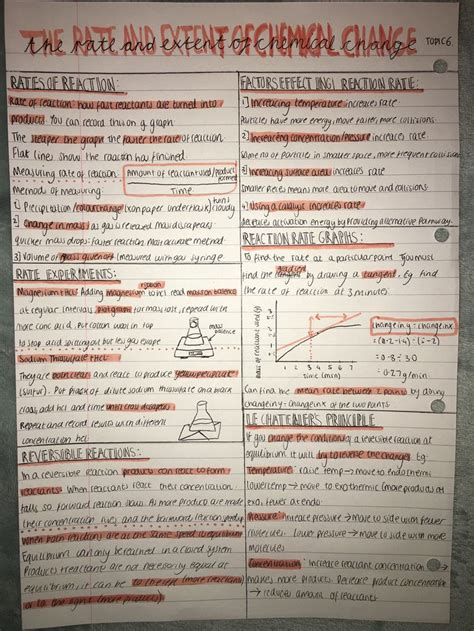 THE RATE AND EXTENT OF CHEMICAL CHANGE
the rate and extent of chemical change
TOPIC 6.
RATES OF REACTION:
Rate of reaction: how fast reactants are turned into
products. You can record this on a graph.
The steeper the graph the faster the rate of reaction.
Flat line shows the reaction has finished.
Measuring rate of reaction:
Amount of reactant used/product formed
Time
Methods of measuring:
1] Precipitation/colourchange (x on paper under flask) turns cloudy
2] Change in mass as gas is released mass disappears
quicker mass drops: faster reaction. Most accurate method
3] Volume of gas given off (measured with gas syringe)
RATE EXPERIMENTS:
Magnesium + HCl: Adding magnesium ribbon to HCl read mass on balance
at regular intervals, plot graph for mass lost, repeat with
more conc acid. put cotton wool in top
to stop acid spitting out but lets gas escape
mass balance
Sodium Thiosulfate + HCl
They are both clear and react to produce yellow precipitate
(sulfur). Put flask of dilute sodium thiosulfate on a black
cross, add hcl and time until cross disappears
Repeat and record results with different
concentration hcl
REVERSIBLE REACTIONS:
In a reversible reaction products can react to form
reactants. When reactants react their concentration
falls so forward reaction slows. As more product are made
their concentration rises and the backward reaction speeds up
When both reactions are at the same speed = equilibrium
Equilibrium can only be reached in a closed system
Products + reactants are not necessarily equal at
equilibrium, it can be to the left (more reactants)
or to the right (more products)
FACTORS EFFECTING REACTION RATE:
1] Increasing temperature increases rate
Particles have more energy, move faster, more collisions.
2] Increasing concentration/pressure increases rate
Same no of particles in smaller space, more frequent collisions
3] Increasing surface area increases rate
Smaller pieces means more area to move and collisions.
4] Using a catalyst increases rate
decreases activation energy by providing alternative pathway.
REACTION RATE GRAPHS:
To find the rate at a particular point you must
find the gradient by drawing a tangent. Eg find
the rate of reaction at 3 minutes.
time (min)
change in y ÷ change in x
= 0.8 ÷ 3.0
= 0.27g/min
Can find the mean rate between 2 points by doing
change in y ÷ change in x of the two points
LE CHATELIER'S PRINCIPLE
If you change the conditions of a reversible reaction at
equilibrium it will try to reverse the changes. Eg:
Temperature: raise temp → move to endothermic
lower temp → move to exothermic (more products at
exo, fewer at endo)
Pressure: increase pressure → move to side with fewer
molecules. Lower pressure → move to side with more
molecules
Concentration: Increase reactant concentration →
makes more products. Decrease product concentration
→ reduces amount of reactants